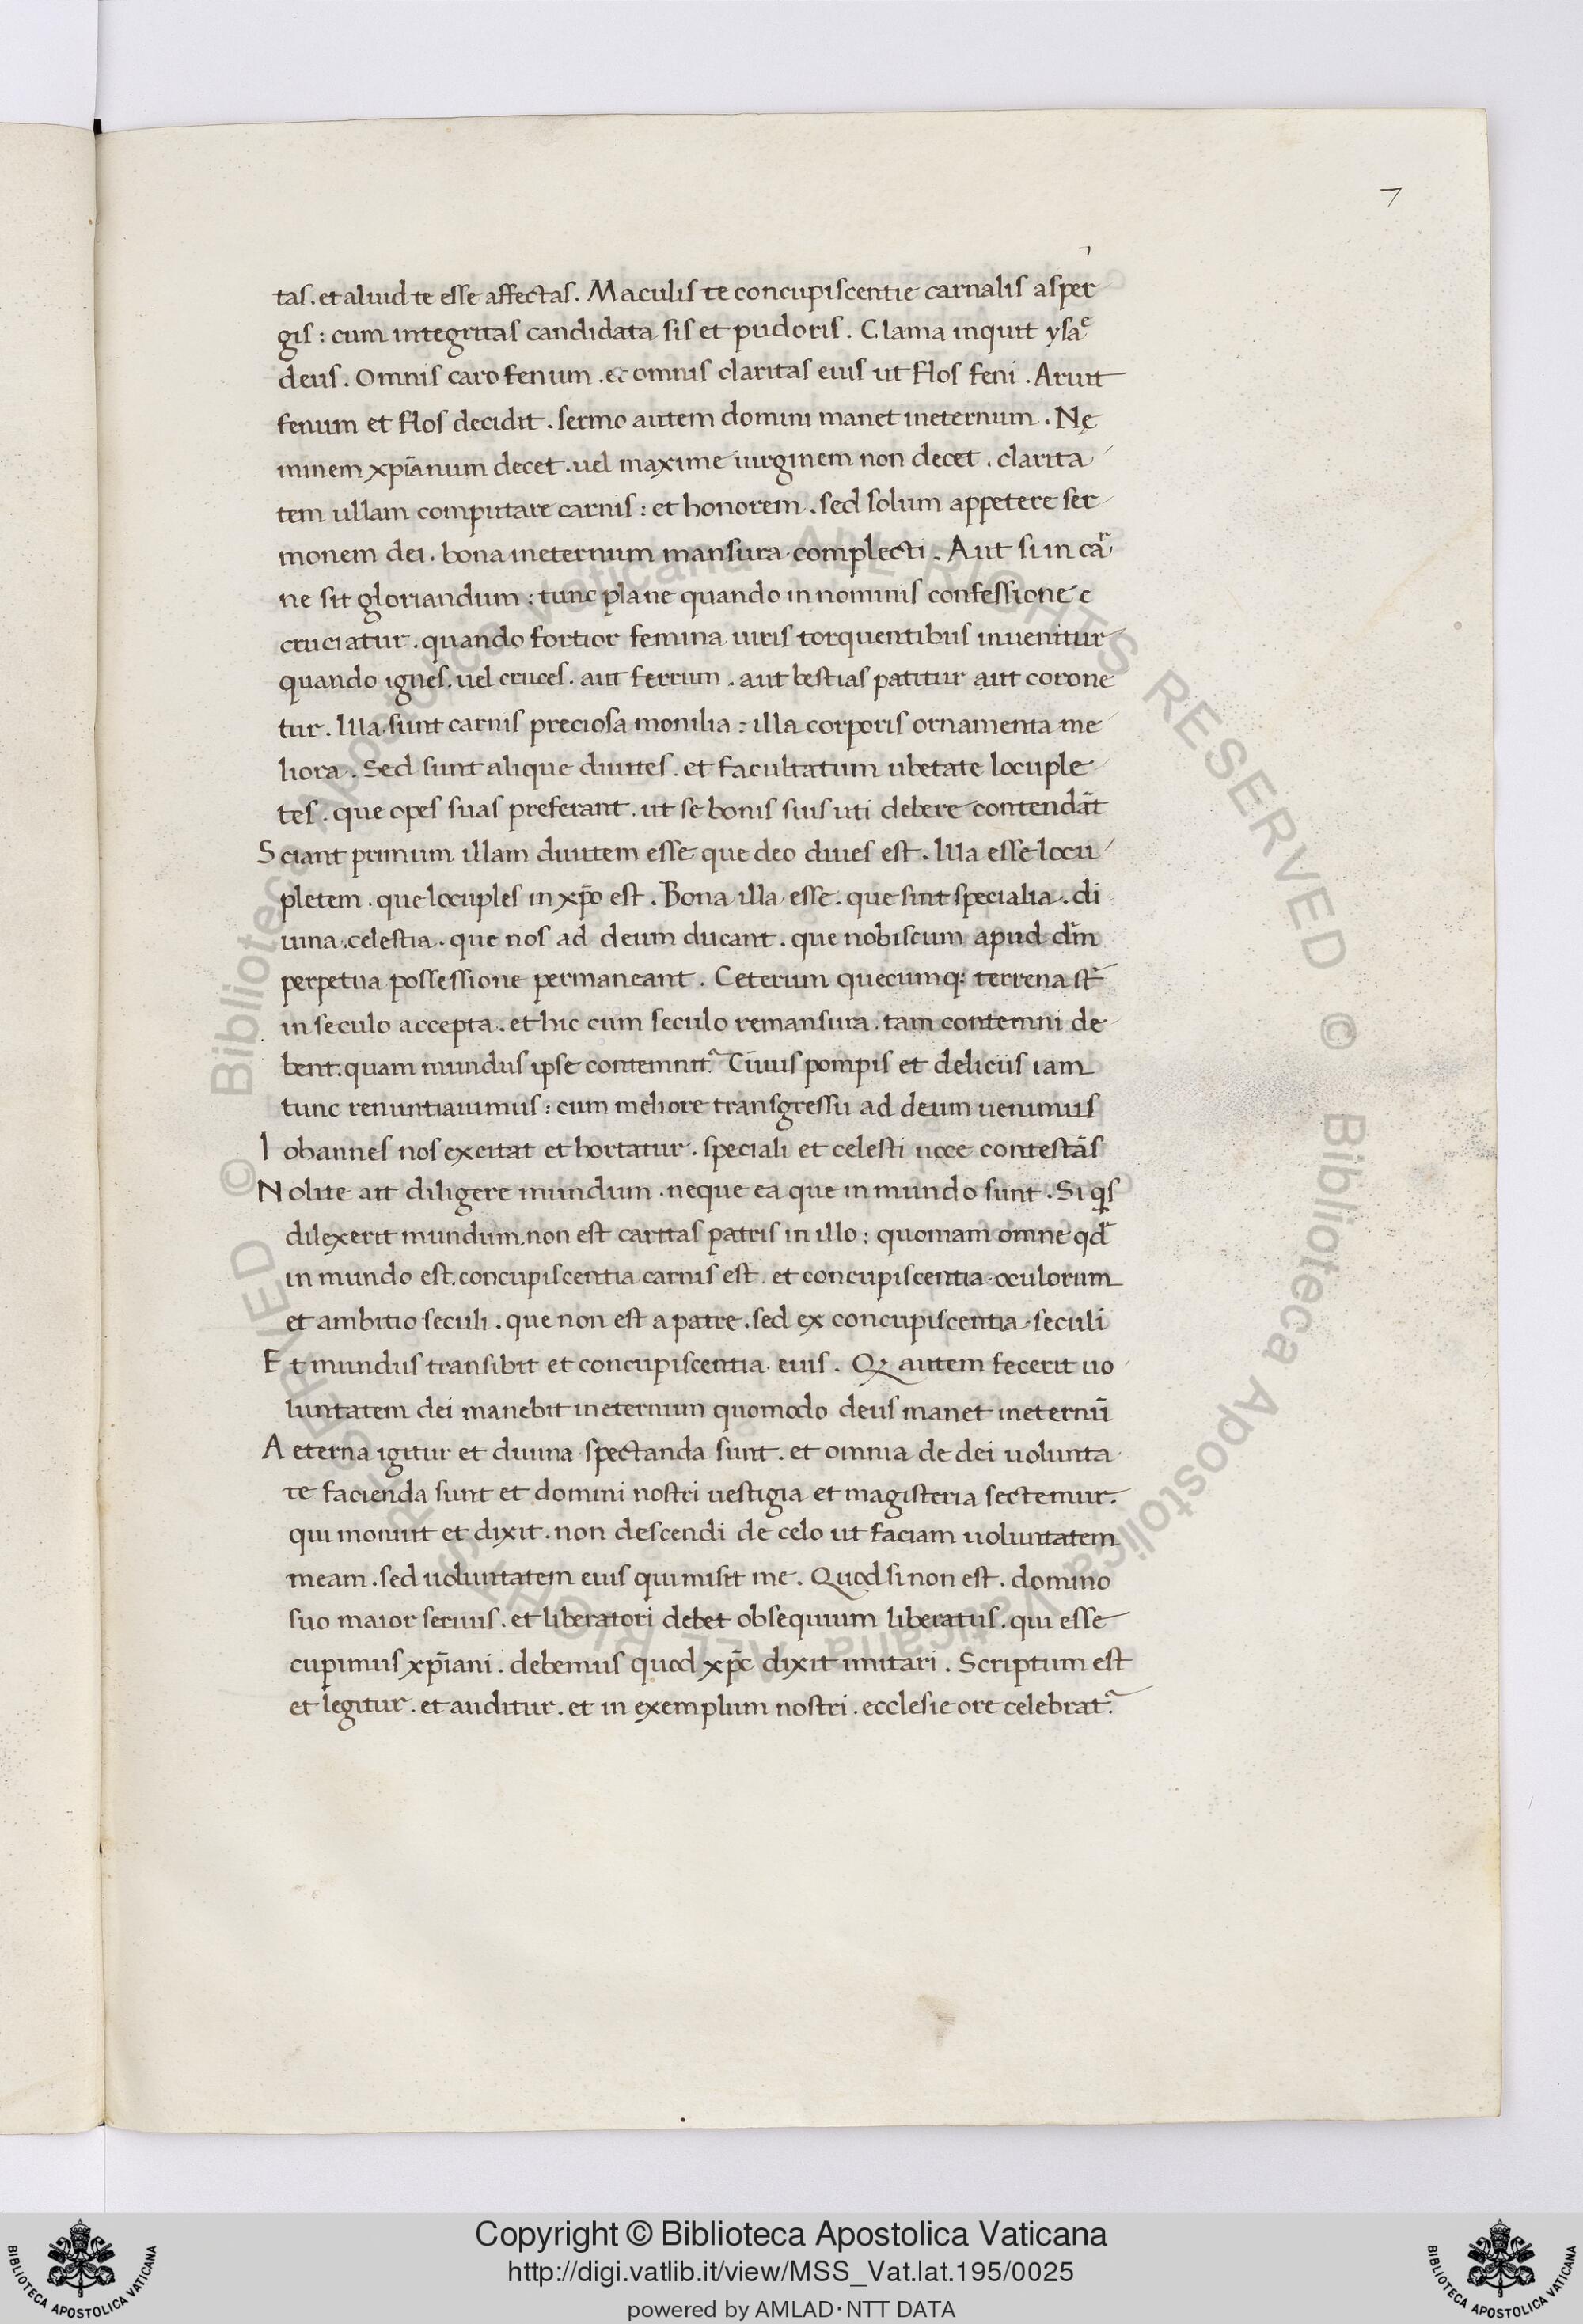 7
tas. et aliud te esse affectas. Maculis te concupiscentie carnalis asper
gis: cum integritas candidata sis et pudoris. Clama inquit ysae
deus. Omnis caro fenum. et omnis claritas eius ut flos feni. Aruit
fenum et flos decidit. sermo autem domini manet ineternum. Nę
minem xp̄ianum decet. uel maxime uirginem non decet. clarita
tem ullam computare carnis: et honorem. sed solum appetere ser
monem dei. bona ineternum mansura complecti. Aut si in car
ne sit gloriandum: tunc plane quando in nominis confessione c
cruciatur. quando fortior femina uiris torquentibus inuenitur
quando ignes. uel cruces. aut ferrum. aut bestias patitur aut corone
tur. Illa sunt carnis preciosa monilia: illa corporis ornamenta me
liora. Sed sunt alique diuites. et facultatum ubetate locuple
tes. que opes suas preferant. ut se bonis suis uti debere contendāt
Sciant primum illam diuitem esse que deo diues est. Illa esse locu
pletem. que locuples in xp̄o est. Bona illa esse. que sint specialia. di
uina. celestia. que nos ad deum ducant. que nobiscum apud dm̄
perpetua possessione permaneant. Ceterum quecumq: terrena st̄
in seculo accepta. et hic cum seculo remansura. tam contemni de
bent. quam mundus ipse contemnit. Cuiuus pompis et deliciis iam
tunc renuntiauimus: cum meliore transgressu ad deum uenimus
Iohannes nos excitat et hortatur. speciali et celesti uoce contestās
Nolite ait diligere mundum. neque ea que in mundo sunt. Si qs
dilexerit mundum. non est caritas patris in illo: quoniam omne qd
in mundo est. concupiscentia carnis est. et concupiscentia oculorum
et ambitio seculi. que non est a patre. sed ex concupiscentia seculi
Et mundus transibit et concupiscentia eius. Qz autem fecerit uo
luntatem dei manebit ineternum quomodo deus manet ineternū
Aeterna igitur et diuina spectanda sunt. et omnia de dei uolunta
te facienda sunt et domini nostri uestigia et magisteria sectemur.
qui monuit et dixit. non descendi de celo ut faciam uoluntatem
meam. sed uoluntatem eius qui misit me. Quod si non est. domino
suo maior seruus. et liberatori debet obsequium liberatus. qui esse
cupimus xp̄iani. debemus quod xp̄c dixit imitari. Scriptum est
et legitur. et auditur. et in exemplum nostri. ecclesie ore celebrat.
© Biblioteca Apostolica Vaticana ALL RIGHTS RESERVED © Biblioteca Apostolica Vaticana ALL RIGHTS RESERVED
Copyright © Biblioteca Apostolica Vaticana
http://digi.vatlib.it/view/MSS_Vat.lat.195/0025
powered by AMLAD·NTT DATA
BIBLIOTECA APOSTOLICA VATICANA
BIBLIOTECA APOSTOLICA VATICANA